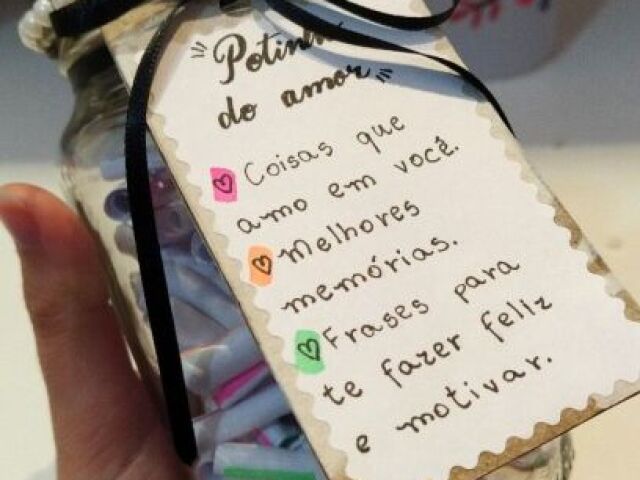 "Potinho
do amor"
Coisas que
amo em você.
Melhores
memórias.
Frases para
te fazer feliz
e motivar.